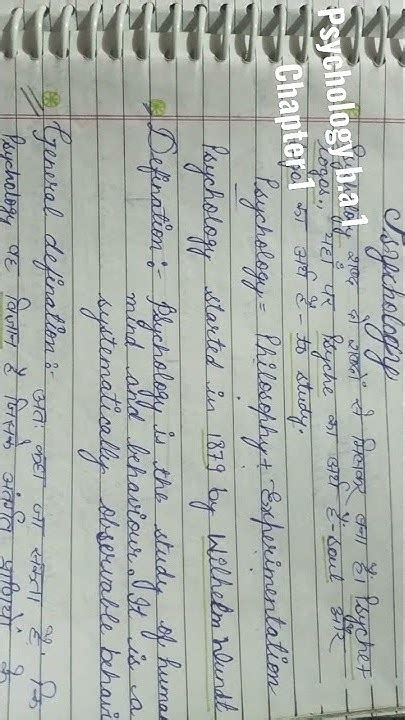 Psychology b.a 1
Chapter 1
Psychology
Psychology शब्द दो शब्दों से मिलकर बना है। Psyche +
Logos, यहां पर Psyche का अर्थ है - Soul और
का अर्थ है - to study.
Psychology = Philosophy + Experimentation
Psychology started in 1879 by Wilhelm Wundt
Defination :- Psychology is the study of human
mind and behaviour. It is a
systematically observable behavi
General defination :-
अतः कहा जा सकता है कि
Psychology वह विज्ञान है जिसके अंतर्गत प्राणियों के